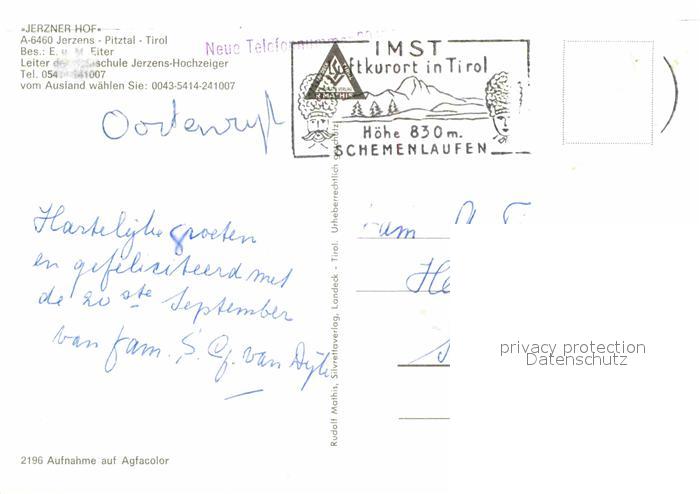 »JERZNER HOF«
A-6460 Jerzens - Pitztal - Tirol
Bes.: E. u. M. Eiter
Leiter der schule Jerzens-Hochzeiger
Tel. 054 41007
vom Ausland wählen Sie: 0043-5414-241007
Neue Telefonnummer
IMST
Luftkurort in Tirol
Höhe 830 m.
SCHEMENLAUFEN
Hartelijke groeten
en gefeliciteerd met
de 20 ste September
van fam. S. G. van
Fam
He
Rudolf Mathis, Silvrettaverlag, Landeck - Tirol. Urheberrechtlich
privacy protection
Datenschutz
2196 Aufnahme auf Agfacolor